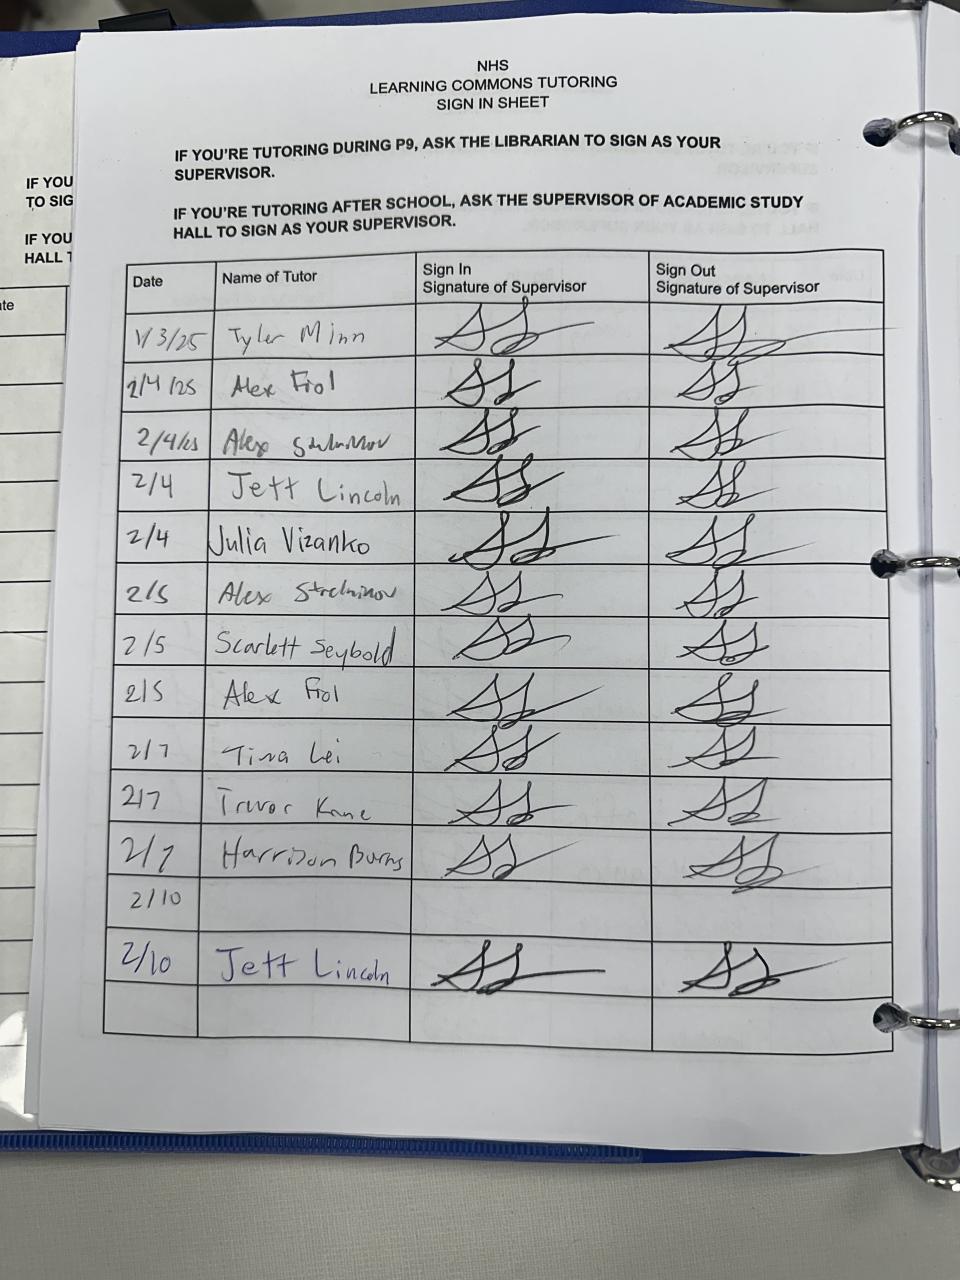 NHS
LEARNING COMMONS TUTORING
SIGN IN SHEET
IF YOU'RE TUTORING DURING P9, ASK THE LIBRARIAN TO SIGN AS YOUR
SUPERVISOR.
IF YOU'RE TUTORING AFTER SCHOOL, ASK THE SUPERVISOR OF ACADEMIC STUDY
HALL TO SIGN AS YOUR SUPERVISOR.
IF YOU
TO SIG
IF YOU
HALL T
ate
Date Name of Tutor Sign In Signature of Supervisor Sign Out Signature of Supervisor
3/25 Tyler Minn
2/4/25 Alex Frol
2/4/25 Alex
2/4 Jett Lincoln
2/4 Julia Vizanko
2/5 Alex
2/5 Scarlett Seybold
2/5 Alex Frol
2/7 Tina Lei
2/7 Trevor Kane
2/7 Harrison Burns
2/10
2/10 Jett Lincoln